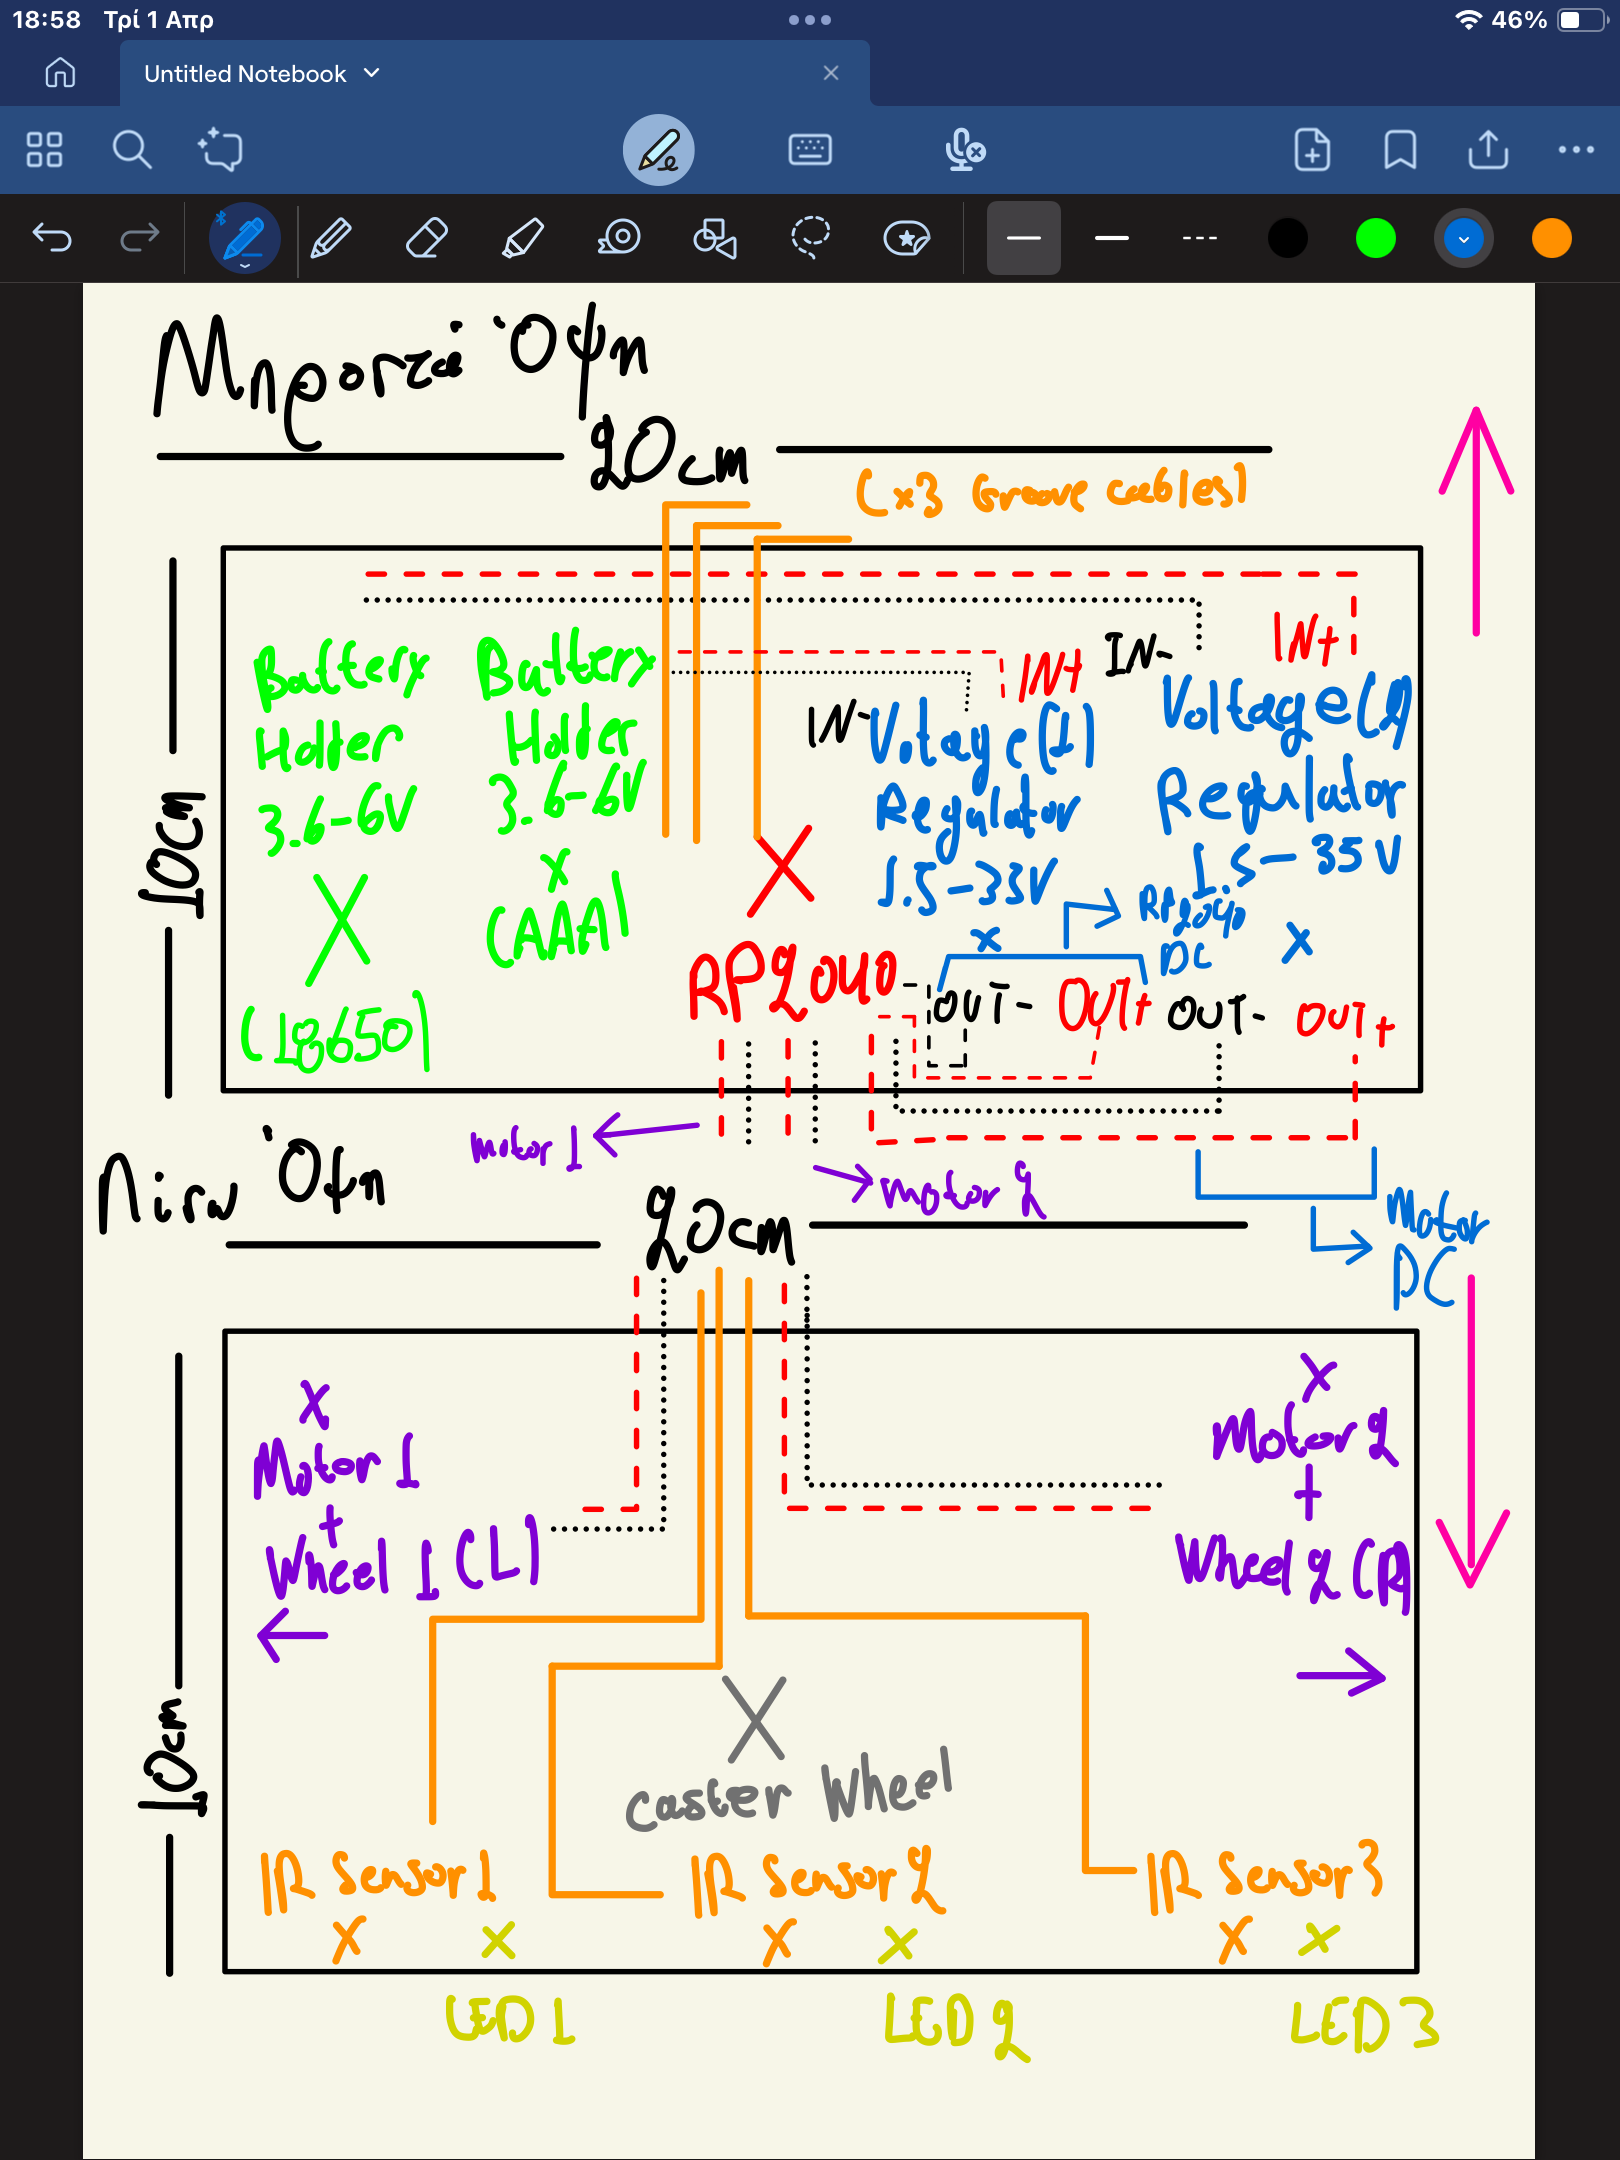 18:58 Τρί 1 Απρ
46%
Untitled Notebook
Μπροστά Όψη
20cm
(x3 Groove cables)
10cm
IN+
IN-
IN+
IN-
Battery Holder 3.6-6V
X
(18650)
Battery Holder 3.6-6V
x
(AAA)
Votage (1)
Regulator
1.5-33V
x
Voltage (2)
Regulator
1.5-35V
x
RP2040
DC
X
RP2040
OUT-
OUT+
OUT-
OUT+
motor 1
motor 2
Motor
DC
Πίσω Όψη
20cm
10cm
x
Motor 1
+
Wheel 1 (L)
x
Motor 2
+
Wheel 2 (R)
X
Caster Wheel
IR Sensor 1
IR Sensor 2
IR Sensor 3
x x
x x
x x
LED 1
LED 2
LED 3